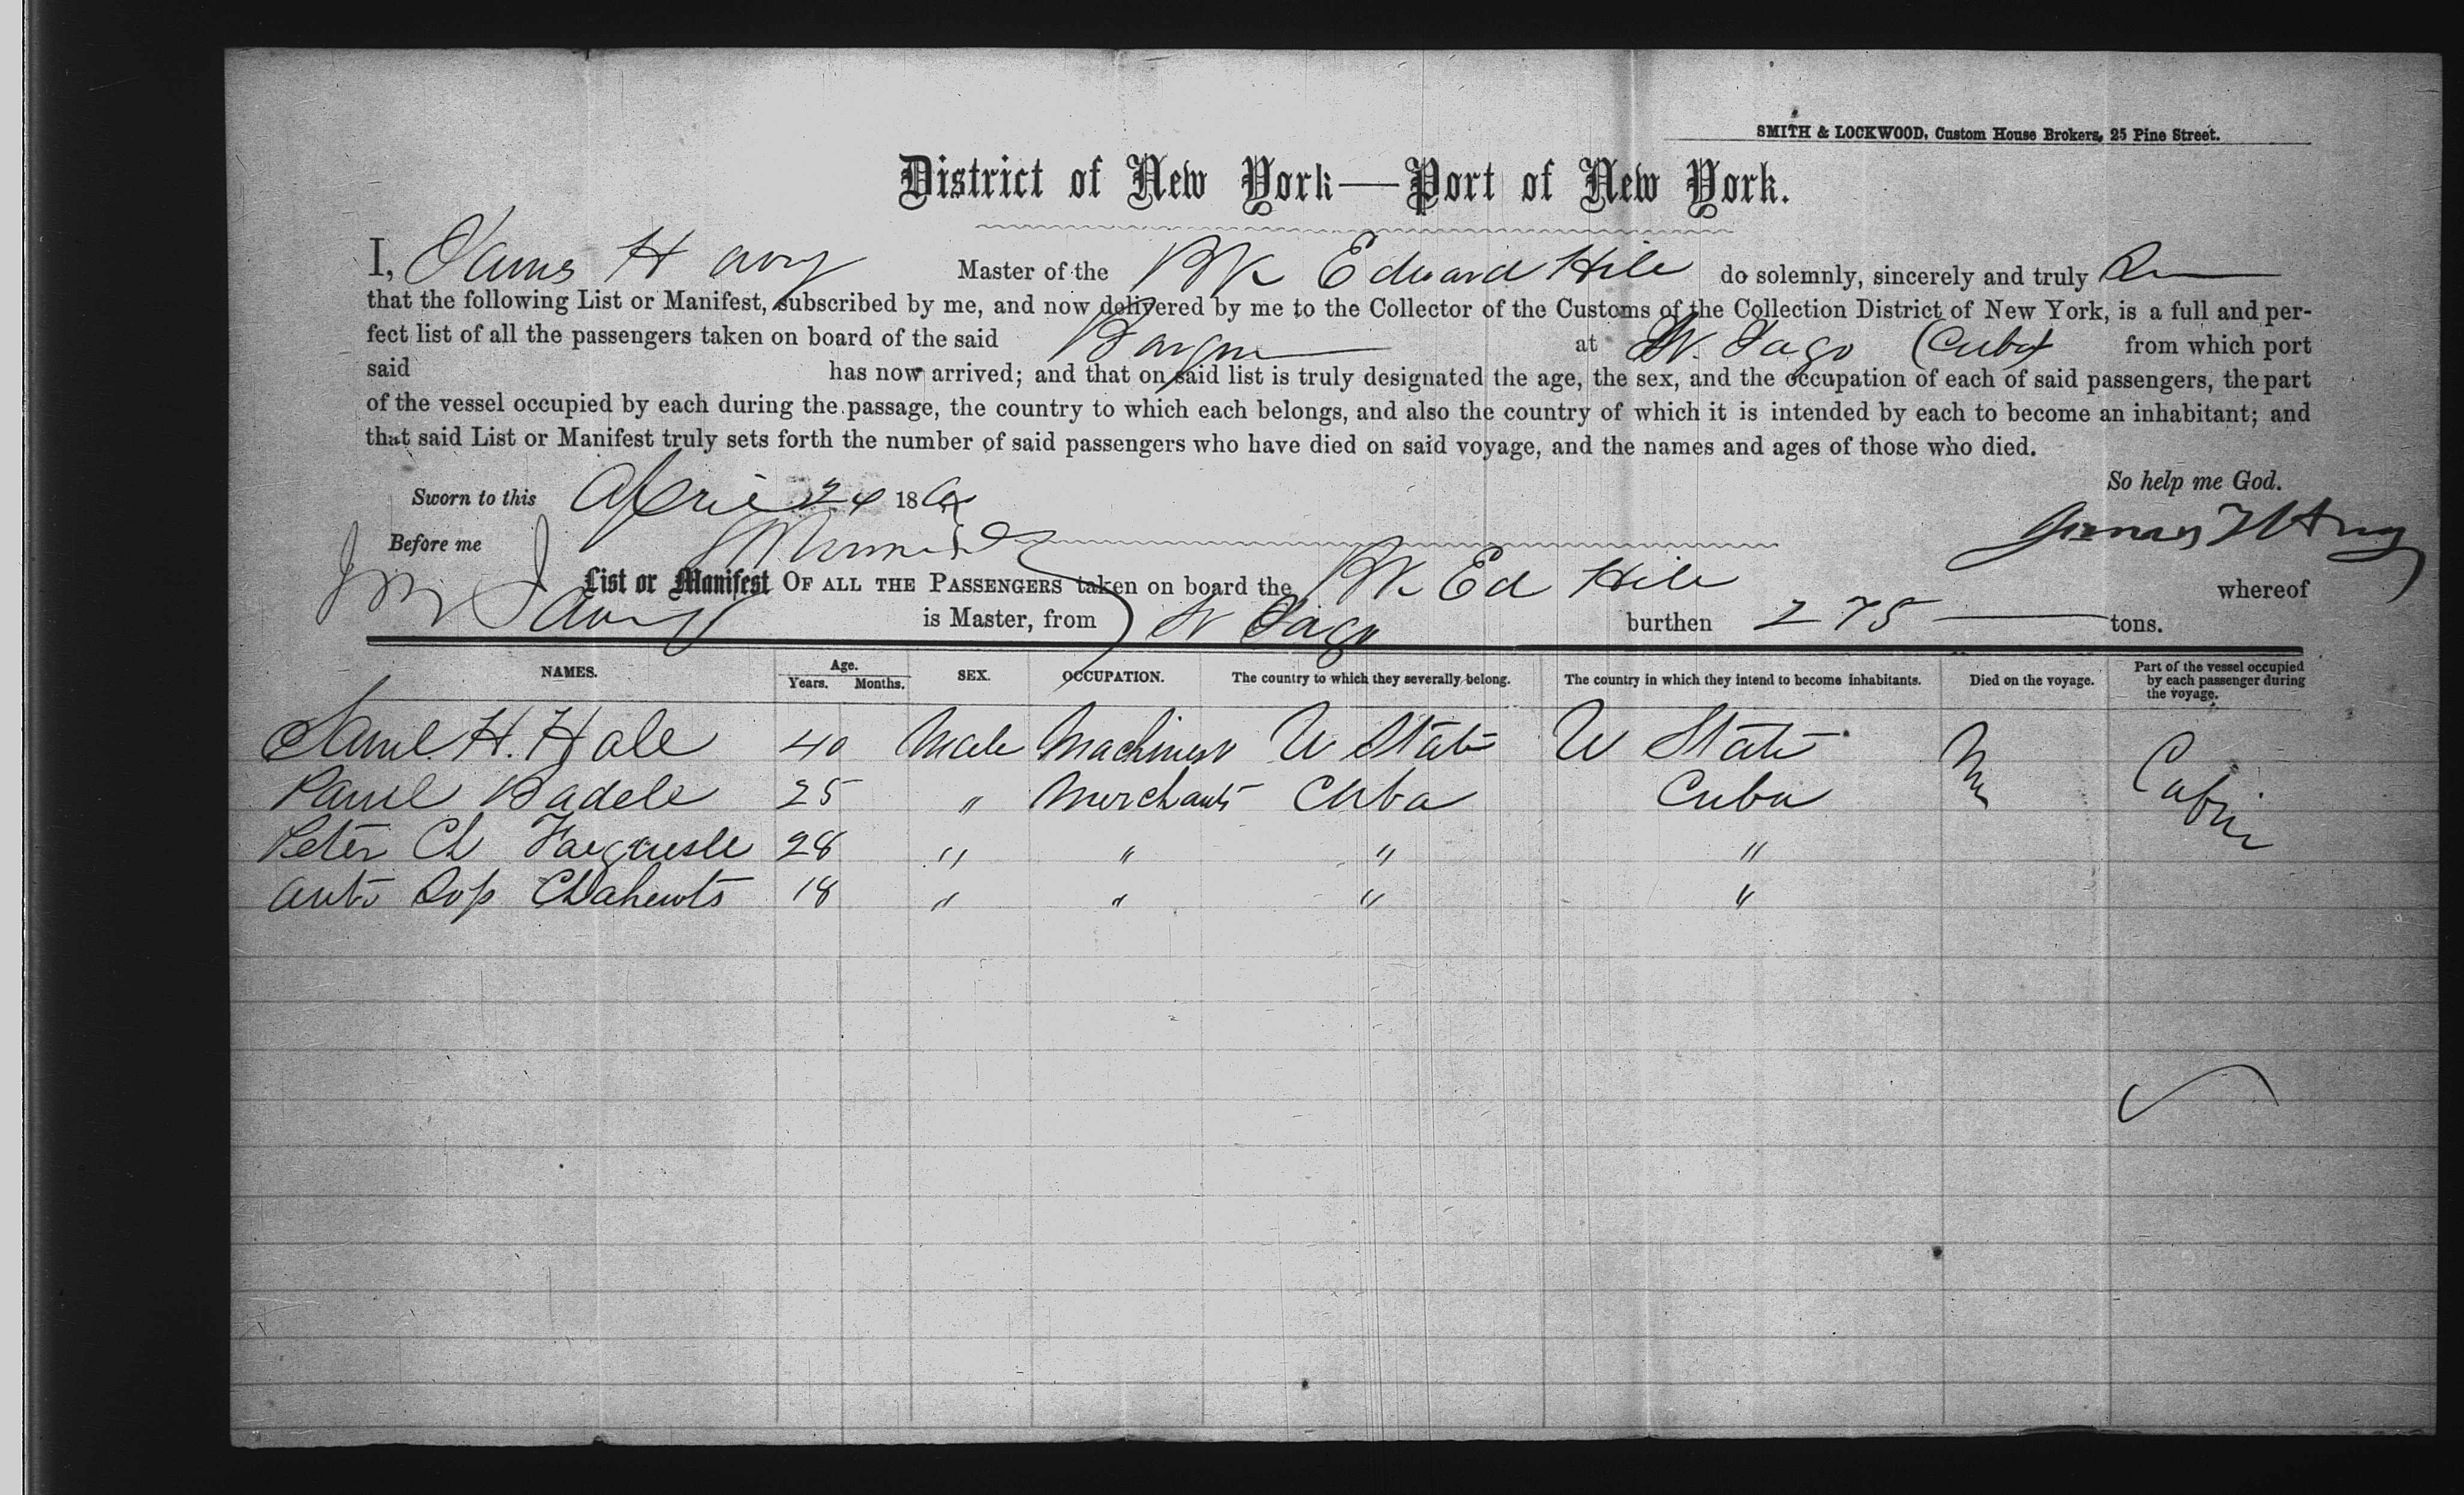 SMITH & LOCKWOOD, Custom House Brokers, 25 Pine Street.
District of New York—Port of New York.
I, James H Master of the Bk Edward Hill do solemnly, sincerely and truly
that the following List or Manifest, subscribed by me, and now delivered by me to the Collector of the Customs of the Collection District of New York, is a full and per-
fect list of all the passengers taken on board of the said Barque at St. Jago (Cuba) from which port
said has now arrived; and that on said list is truly designated the age, the sex, and the occupation of each of said passengers, the part
of the vessel occupied by each during the passage, the country to which each belongs, and also the country of which it is intended by each to become an inhabitant; and
that said List or Manifest truly sets forth the number of said passengers who have died on said voyage, and the names and ages of those who died.
So help me God.
Sworn to this April 24 186
Before me
List or Manifest OF ALL THE PASSENGERS taken on board the Bk Ed Hill whereof
is Master, from St Jago burthen 275 tons.
NAMES. Age. Years. Months. SEX. OCCUPATION. The country to which they severally belong. The country in which they intend to become inhabitants. Died on the voyage. Part of the vessel occupied by each passenger during the voyage.
Saml. H. Hale 40 Male Machinest U State U State Cabin
Badell 25 " Merchant Cuba Cuba
Peter Ch 28 " " " "
Anto 18 " " " "